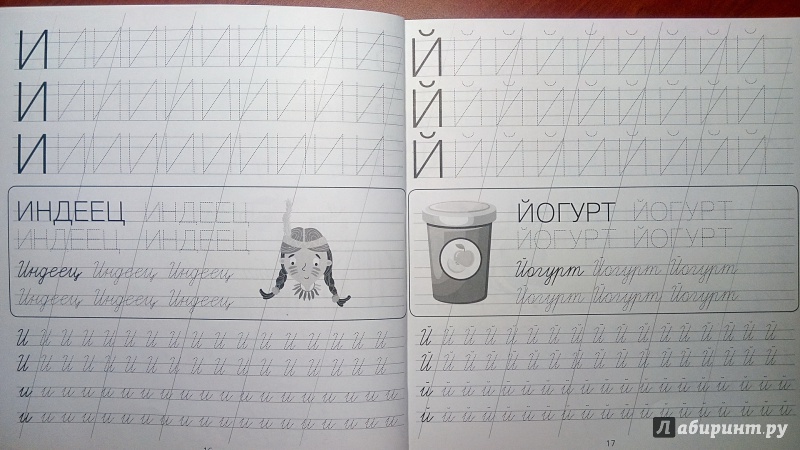 И И И И И И И И И И
И И И И И И И И И И
И И И И И И И И И И
ИНДЕЕЦ ИНДЕЕЦ
ИНДЕЕЦ ИНДЕЕЦ
Индеец Индеец Индеец
Индеец Индеец Индеец
И И И И И И И И И И И И И И И
И И И И И И И И И И И И И И И
и и и и и и и и и и и и и и и и и и и
и и и и и и и и и и и и и и и и и и и
16
Й Й Й Й Й Й Й Й Й
Й Й Й Й Й Й Й Й Й
Й Й Й Й Й Й Й Й Й
ЙОГУРТ ЙОГУРТ
ЙОГУРТ ЙОГУРТ
Йогурт Йогурт Йогурт
Йогурт Йогурт Йогурт
Й Й Й Й Й Й Й Й Й Й Й Й Й Й
Й Й Й Й Й Й Й Й Й Й Й Й Й Й
й й й й й й й й й й й й й й й й й й
й й й й й й й й й й й й й й й й й й
17
Лабиринт.ру